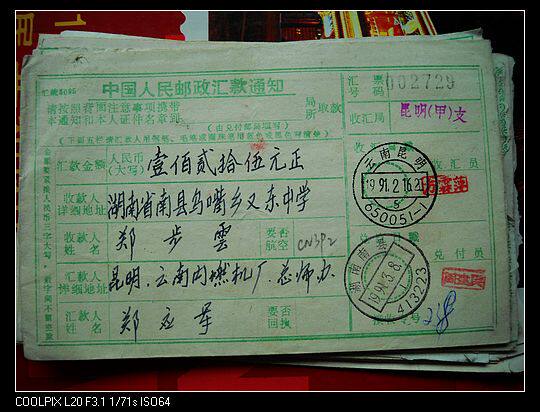 汇款5095
中国人民邮政汇款通知
汇票
号码
002729
请按照背面注意事项携带
本通知和本人名章到
局
所
取款
(由兑付邮局填写)
收汇局
昆明(甲)支
汇款金额
人民币
(大写)
壹佰贰拾伍元正
云南昆明
1991.2.16.20
s
650051-
收汇员
收款人
详细地址
湖南省南县乌嘴乡又东中学
收款人
姓名
郑步雲
要否
航空
CN3P2
湖南南县
1991.3.8
413223
兑付员
汇款人
详细地址
昆明、云南内燃机厂总师办
汇款人
姓名
郑
要否
回执
COOLPIX L20 F3.1 1/71s ISO64